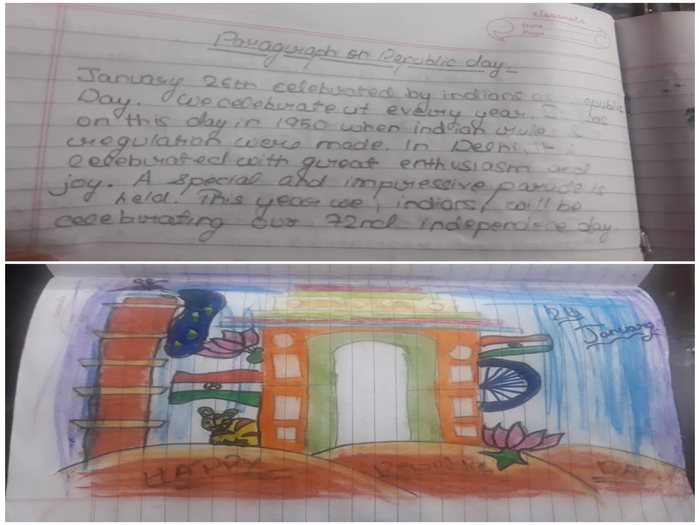 classmate
Date
Page
Paragraph on Republic day
January 26th celebrated by indians as republic
Day. We celebrate it every year. It was
on this day in 1950 when indian rules &
regulation were made. In Delhi, it is
celebrated with great enthusiasm and
joy. A special and impressive parade is
held. This year we, indians, will be
celebrating our 72nd independece day
26
January
HAPPY Republic DAY